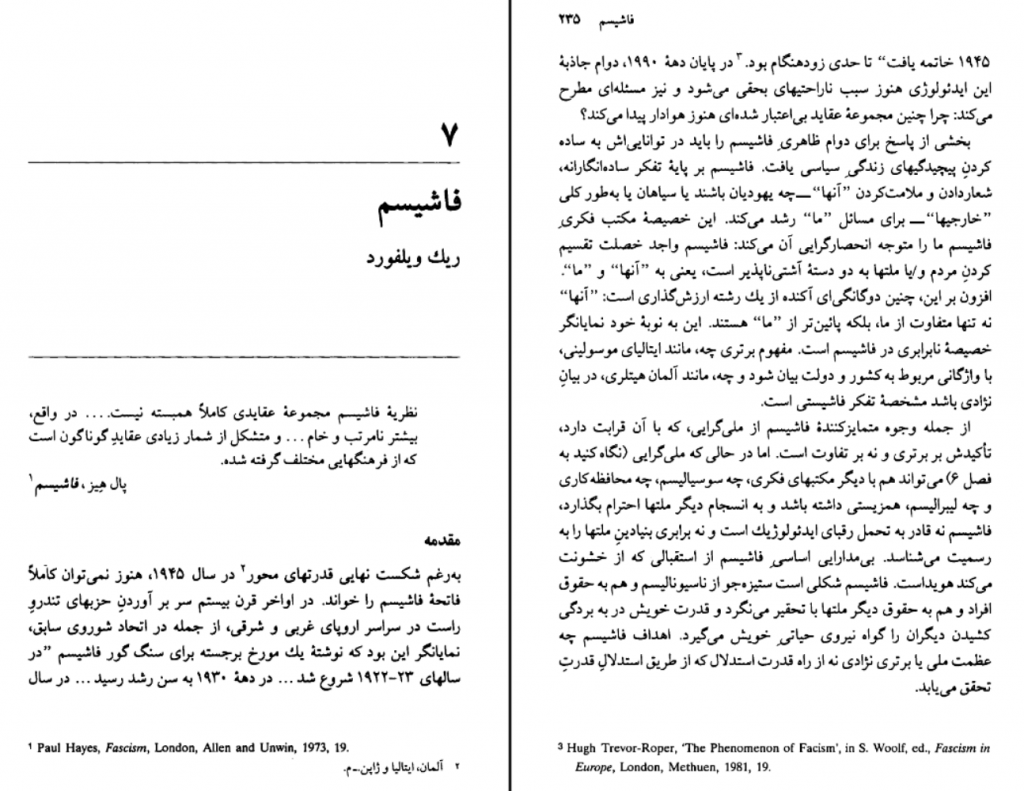 ۷
فاشیسم
ریك ویلفورد
نظریۀ فاشیسم مجموعۀ عقایدی کاملاً همبسته نیست.... در واقع،
بیشتر نامرتب و خام... و متشکل از شمار زیادی عقایدِ گوناگون است
که از فرهنگهایی مختلف گرفته شده.
پال هِیز، فاشیسم۱
مقدمه
به‌رغم شکست نهایی قدرتهای محور۲ در سال ۱۹۴۵، هنوز نمی‌توان کاملاً
فاتحۀ فاشیسم را خواند. در اواخر قرن بیستم سر بر آوردنِ حزبهای تندروِ
راست در سراسر اروپای غربی و شرقی، از جمله در اتحاد شوروی سابق،
نمایانگر این بود که نوشتۀ یك مورخ برجسته برای سنگ گور فاشیسم ”در
سالهای ۲۳-۱۹۲۲ شروع شد ... در دهۀ ۱۹۳۰ به سن رشد رسید ... در سال
۱ Paul Hayes, Fascism, London, Allen and Unwin, 1973, 19.
۲ آلمان، ایتالیا و ژاپن.ــم.
فاشیسم ۲۳۵
۱۹۴۵ خاتمه یافت“ تا حدی زودهنگام بود.۳ در پایان دهۀ ۱۹۹۰، دوام جاذبۀ
این ایدئولوژی هنوز سبب ناراحتیهای بحقی می‌شود و نیز مسئله‌ای مطرح
می‌کند: چرا چنین مجموعۀ عقاید بی‌اعتبار شده‌ای هنوز هوادار پیدا می‌کند؟
بخشی از پاسخ برای دوام ظاهریِ فاشیسم را باید در توانایی‌اش به ساده
کردنِ پیچیدگیهای زندگیِ سیاسی یافت. فاشیسم بر پایۀ تفکر ساده‌انگارانه،
شعاردادن و ملامت‌کردن ”آنها“ــچه یهودیان باشند یا سیاهان یا به‌طور کلی
”خارجیها“ــ برای مسائل ”ما“ رشد می‌کند. این خصیصۀ مکتب فکریِ
فاشیسم ما را متوجه انحصارگرایی آن می‌کند: فاشیسم واجد خصلت تقسیم
کردنِ مردم و/یا ملتها به دو دستۀ آشتی‌ناپذیر است، یعنی به ”آنها“ و ”ما“.
افزون بر این، چنین دوگانگی‌ای آکنده از یك رشته ارزش‌گذاری است: ”آنها“
نه تنها متفاوت از ما، بلکه پائین‌تر از ”ما“ هستند. این به نوبۀ خود نمایانگر
خصیصۀ نابرابری در فاشیسم است. مفهوم برتری چه، مانند ایتالیای موسولینی،
با واژگانی مربوط به کشور و دولت بیان شود و چه، مانند آلمان هیتلری، در بیانِ
نژادی باشد مشخصۀ تفکر فاشیستی است.
از جمله وجوه متمایزکنندۀ فاشیسم از ملی‌گرایی، که با آن قرابت دارد،
تأکیدش بر برتری و نه بر تفاوت است. اما در حالی که ملی‌گرایی (نگاه کنید به
فصل ۶) می‌تواند هم با دیگر مکتبهای فکری، چه سوسیالیسم، چه محافظه‌کاری
و چه لیبرالیسم، همزیستی داشته باشد و به انسجام دیگر ملتها احترام بگذارد،
فاشیسم نه قادر به تحمل رقبای ایدئولوژیك است و نه برابری بنیادینِ ملتها را به
رسمیت می‌شناسد. بی‌مدارایی اساسیِ فاشیسم از استقبالی که از خشونت
می‌کند هویداست. فاشیسم شکلی است ستیزه‌جو از ناسیونالیسم و هم به حقوق
افراد و هم به حقوق دیگر ملتها با تحقیر می‌نگرد و قدرت خویش در به بردگی
کشیدن دیگران را گواه نیروی حیاتیِ خویش می‌گیرد. اهداف فاشیسم چه
عظمت ملی یا برتری نژادی نه از راه قدرت استدلال که از طریق استدلالِ قدرتِ
تحقق می‌یابد.
۳ Hugh Trevor-Roper, ‘The Phenomenon of Facism’, in S. Woolf, ed., Fascism in
Europe, London, Methuen, 1981, 19.